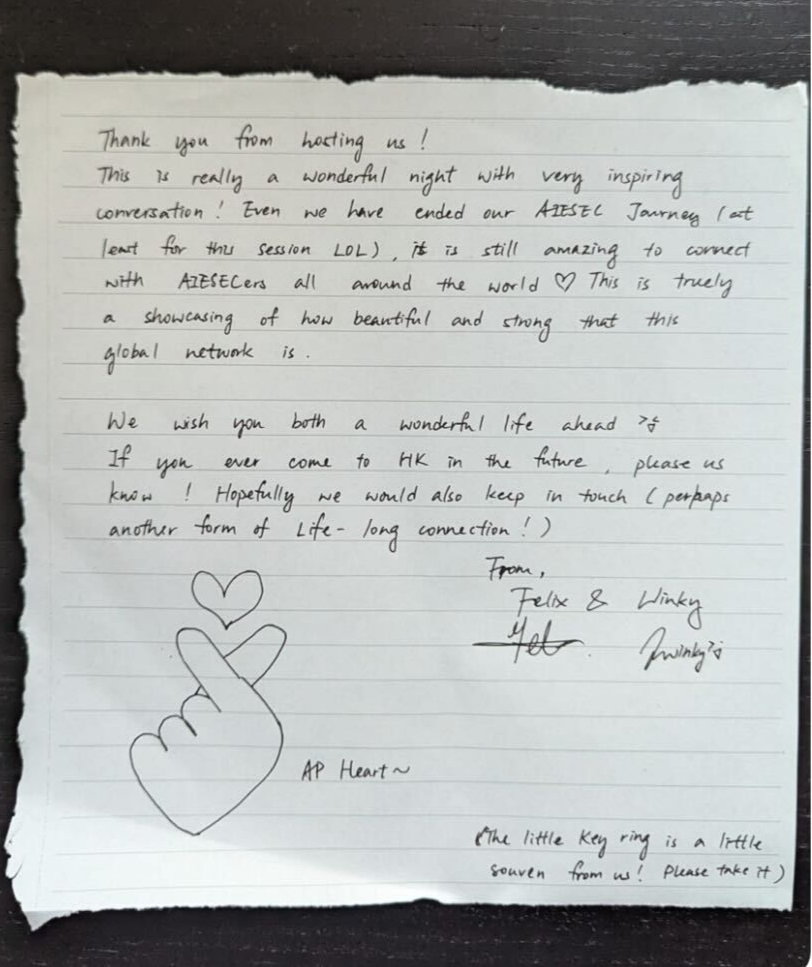 Thank you from hosting us !
This is really a wonderful night with very inspiring
conversation ! Even we have ended our AIESEC Journey (at
least for this session LOL), it is still amazing to connect
with AIESECers all around the world ♡ This is truely
a showcasing of how beautiful and strong that this
global network is .
We wish you both a wonderful life ahead
If you ever come to HK in the future , please us
know ! Hopefully we would also keep in touch ( perhaps
another form of Life - long connection ! )
From,
Felix & Winky
winky
AP Heart ~
(The little key ring is a little
souven from us! Please take it )